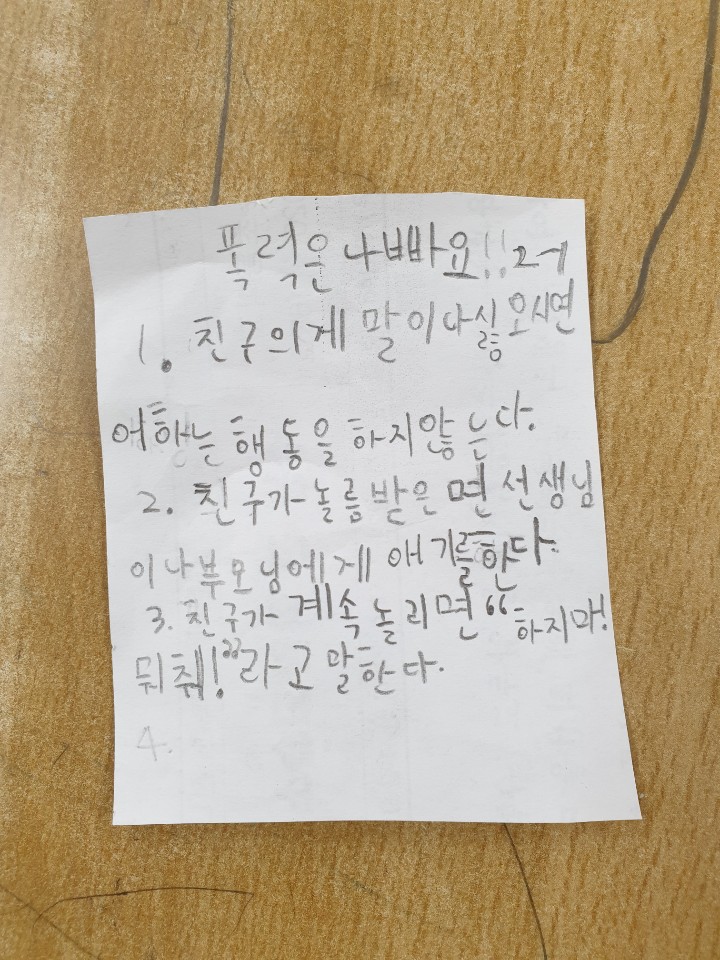 폭력은 나빠요!! 2-1
1. 친구의게 말이나 실
어하는 행동을 하지않는다.
2. 친구가 놀름 받은면 선생님
이나부모님에게 얘기를한다.
3. 친구가 계속 놀리면 “하지마!
뭐춰!”라고 말한다.
4.